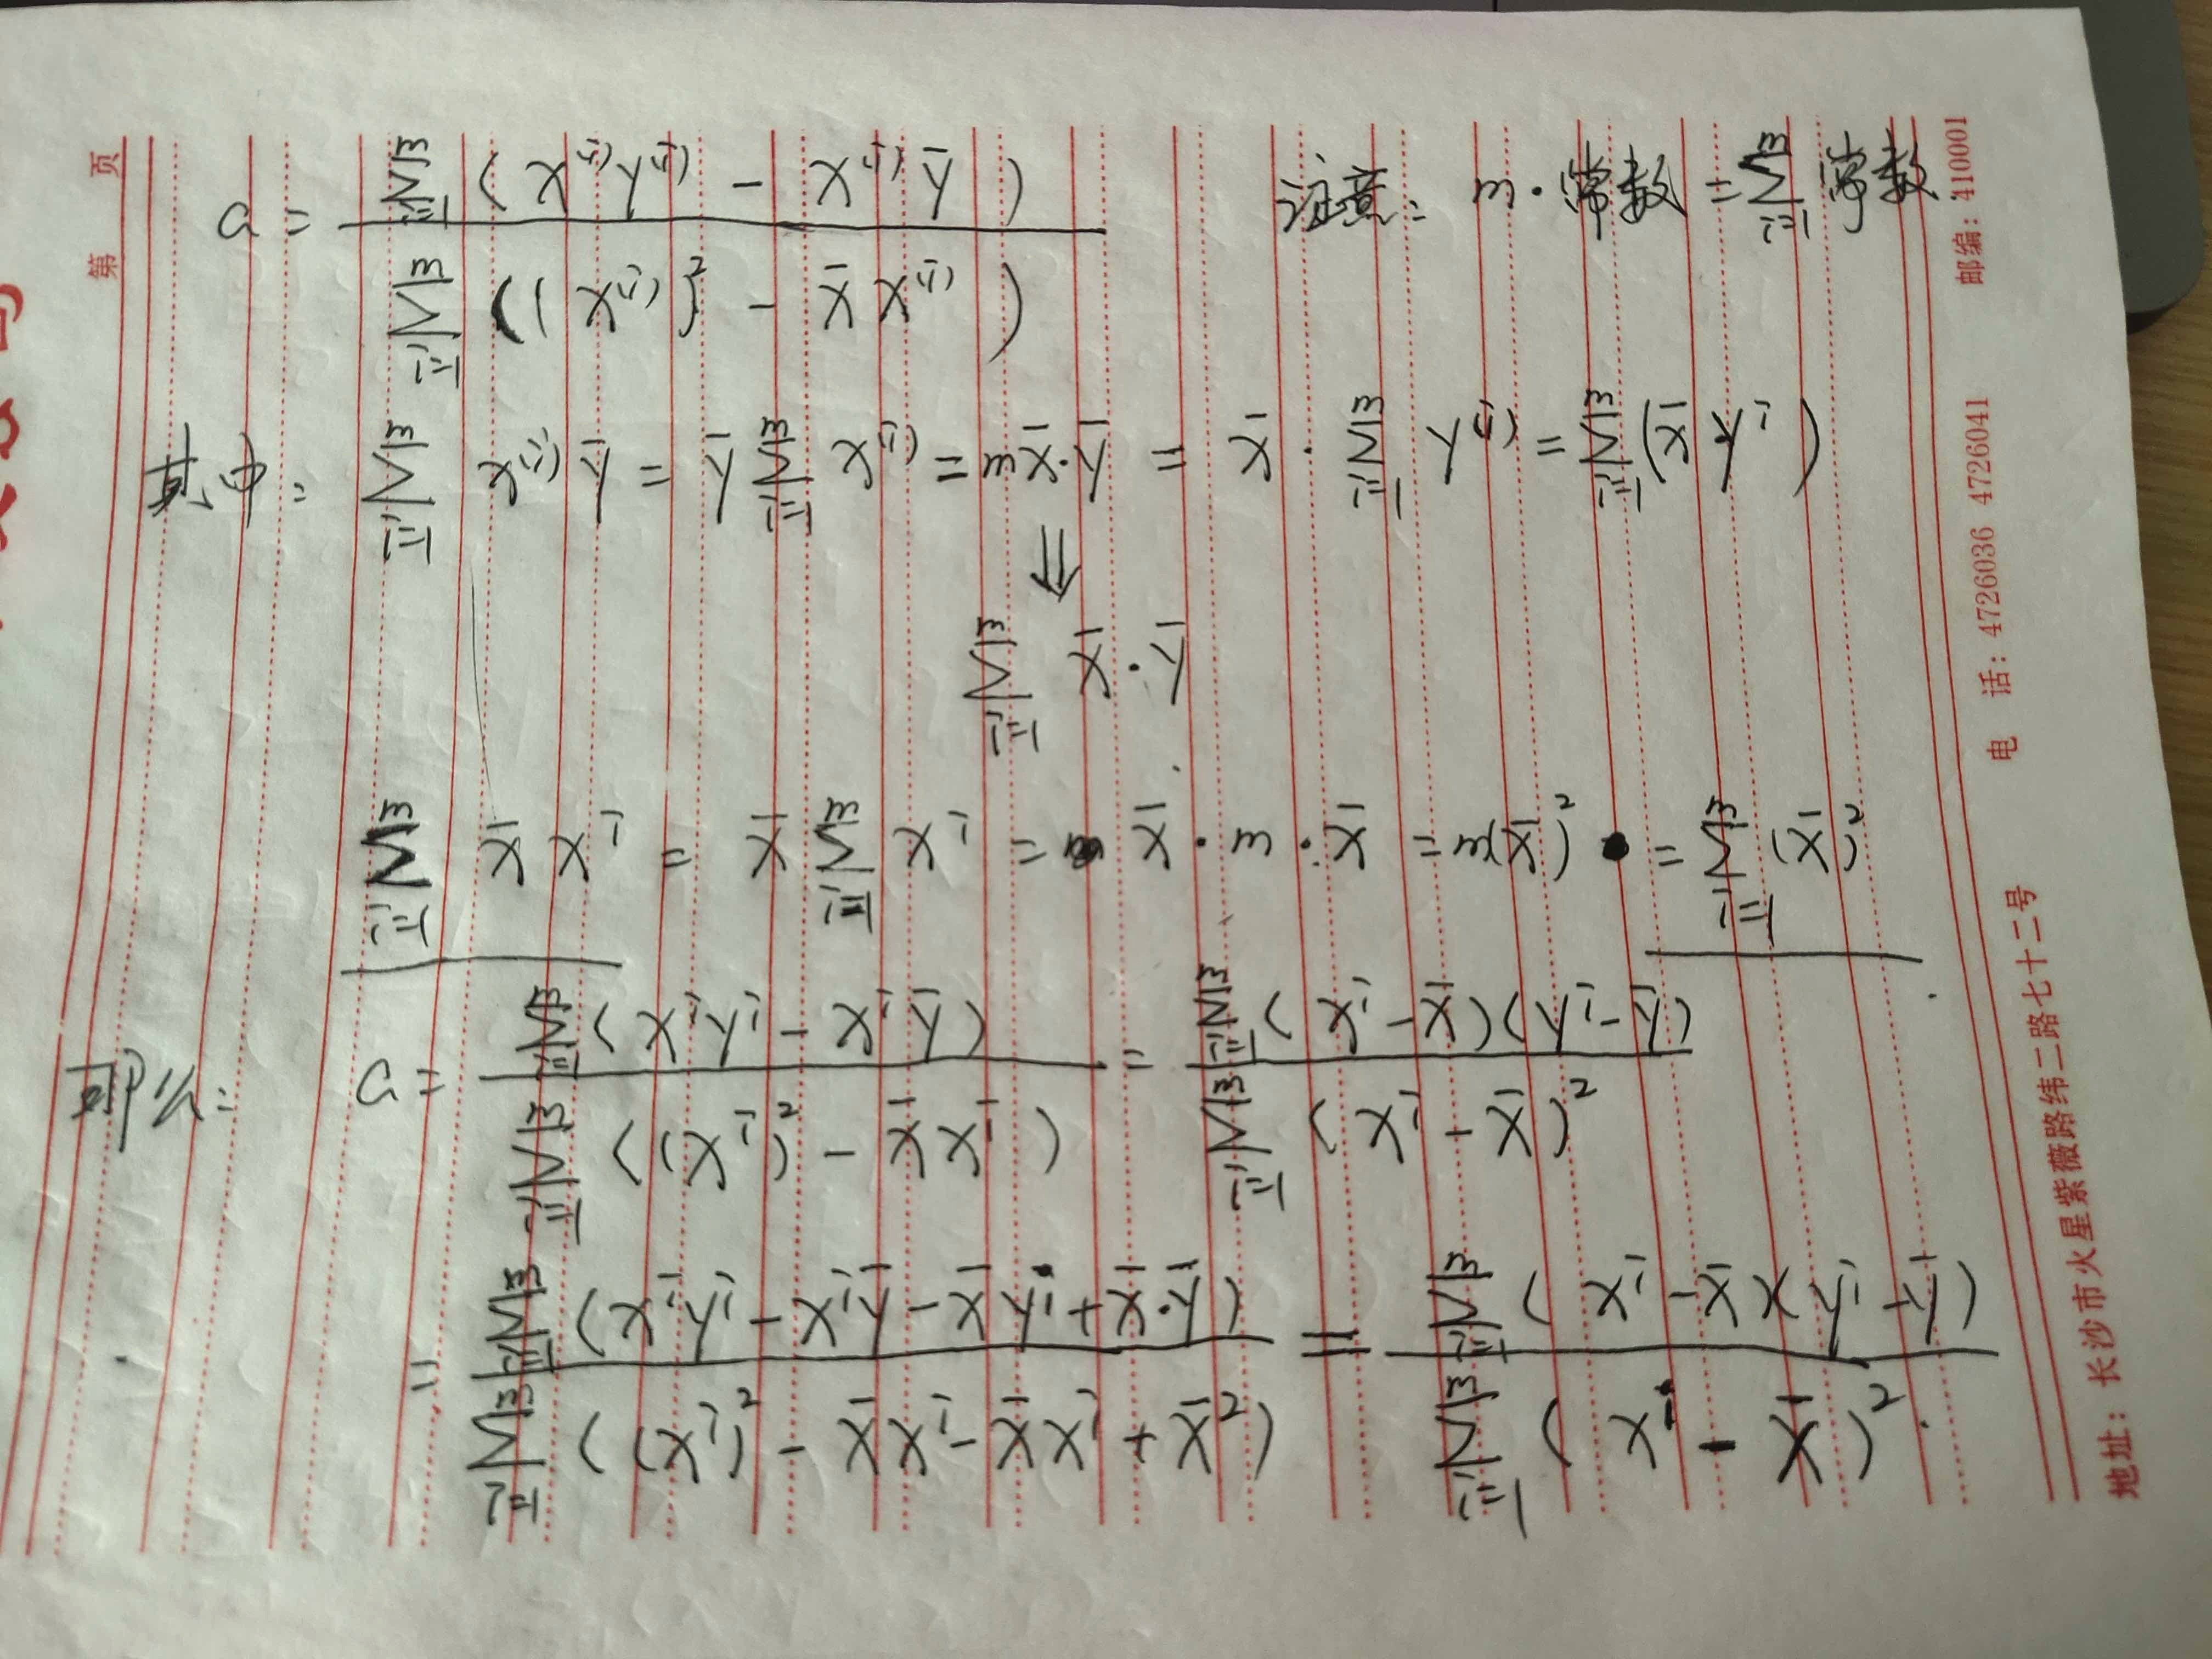 a = \frac{\sum_{i=1}^{m} (x^{(i)}y^{(i)} - x^{(i)}\bar{y})}{\sum_{i=1}^{m} ((x^{(i)})^2 - \bar{x}x^{(i)})} 注意: m·常数 = \sum_{i=1}^{m} 常数
其中: \sum_{i=1}^{m} x^{(i)}\bar{y} = \bar{y}\sum_{i=1}^{m} x^{(i)} = m\bar{x}·\bar{y} = \bar{x}·\sum_{i=1}^{m} y^{(i)} = \sum_{i=1}^{m}(\bar{x}·y^i)
⇓
\sum_{i=1}^{m} \bar{x}·\bar{y}
\sum_{i=1}^{m} \bar{x}x^i = \bar{x}\sum_{i=1}^{m} x^i = \bar{x}·m·\bar{x} = m(\bar{x})^2 = \sum_{i=1}^{m}(\bar{x})^2
那么: a = \frac{\sum_{i=1}^{m}(x^iy^i - x^i\bar{y})}{\sum_{i=1}^{m}((x^i)^2 - \bar{x}x^i)} = \frac{\sum_{i=1}^{m}(x^i - \bar{x})(y^i - \bar{y})}{\sum_{i=1}^{m}(x^i - \bar{x})^2}
= \frac{\sum_{i=1}^{m}(x^iy^i - x^i\bar{y} - \bar{x}y^i + \bar{x}·\bar{y})}{\sum_{i=1}^{m}((x^i)^2 - \bar{x}x^i - \bar{x}x^i + \bar{x}^2)} = \frac{\sum_{i=1}^{m}(x^i - \bar{x})(y^i - \bar{y})}{\sum_{i=1}^{m}(x^i - \bar{x})^2}.
第 页
地址: 长沙市火星紫薇路纬二路七十二号 电 话: 4726036 4726041 邮编: 410001